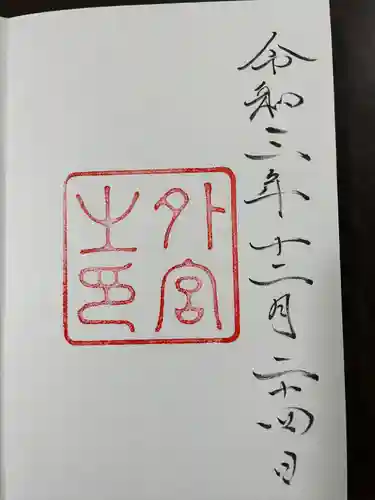 令和三年十二月二十四日
外宮
之印